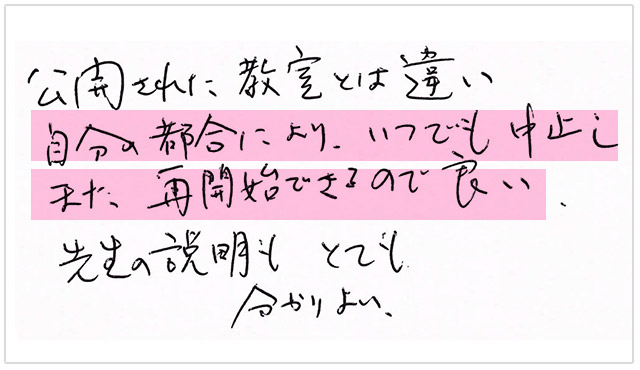 公開された教室とは違い
自分の都合により、いつでも中止し
また、再開始できるので良い、
先生の説明も とても
分かりよい、